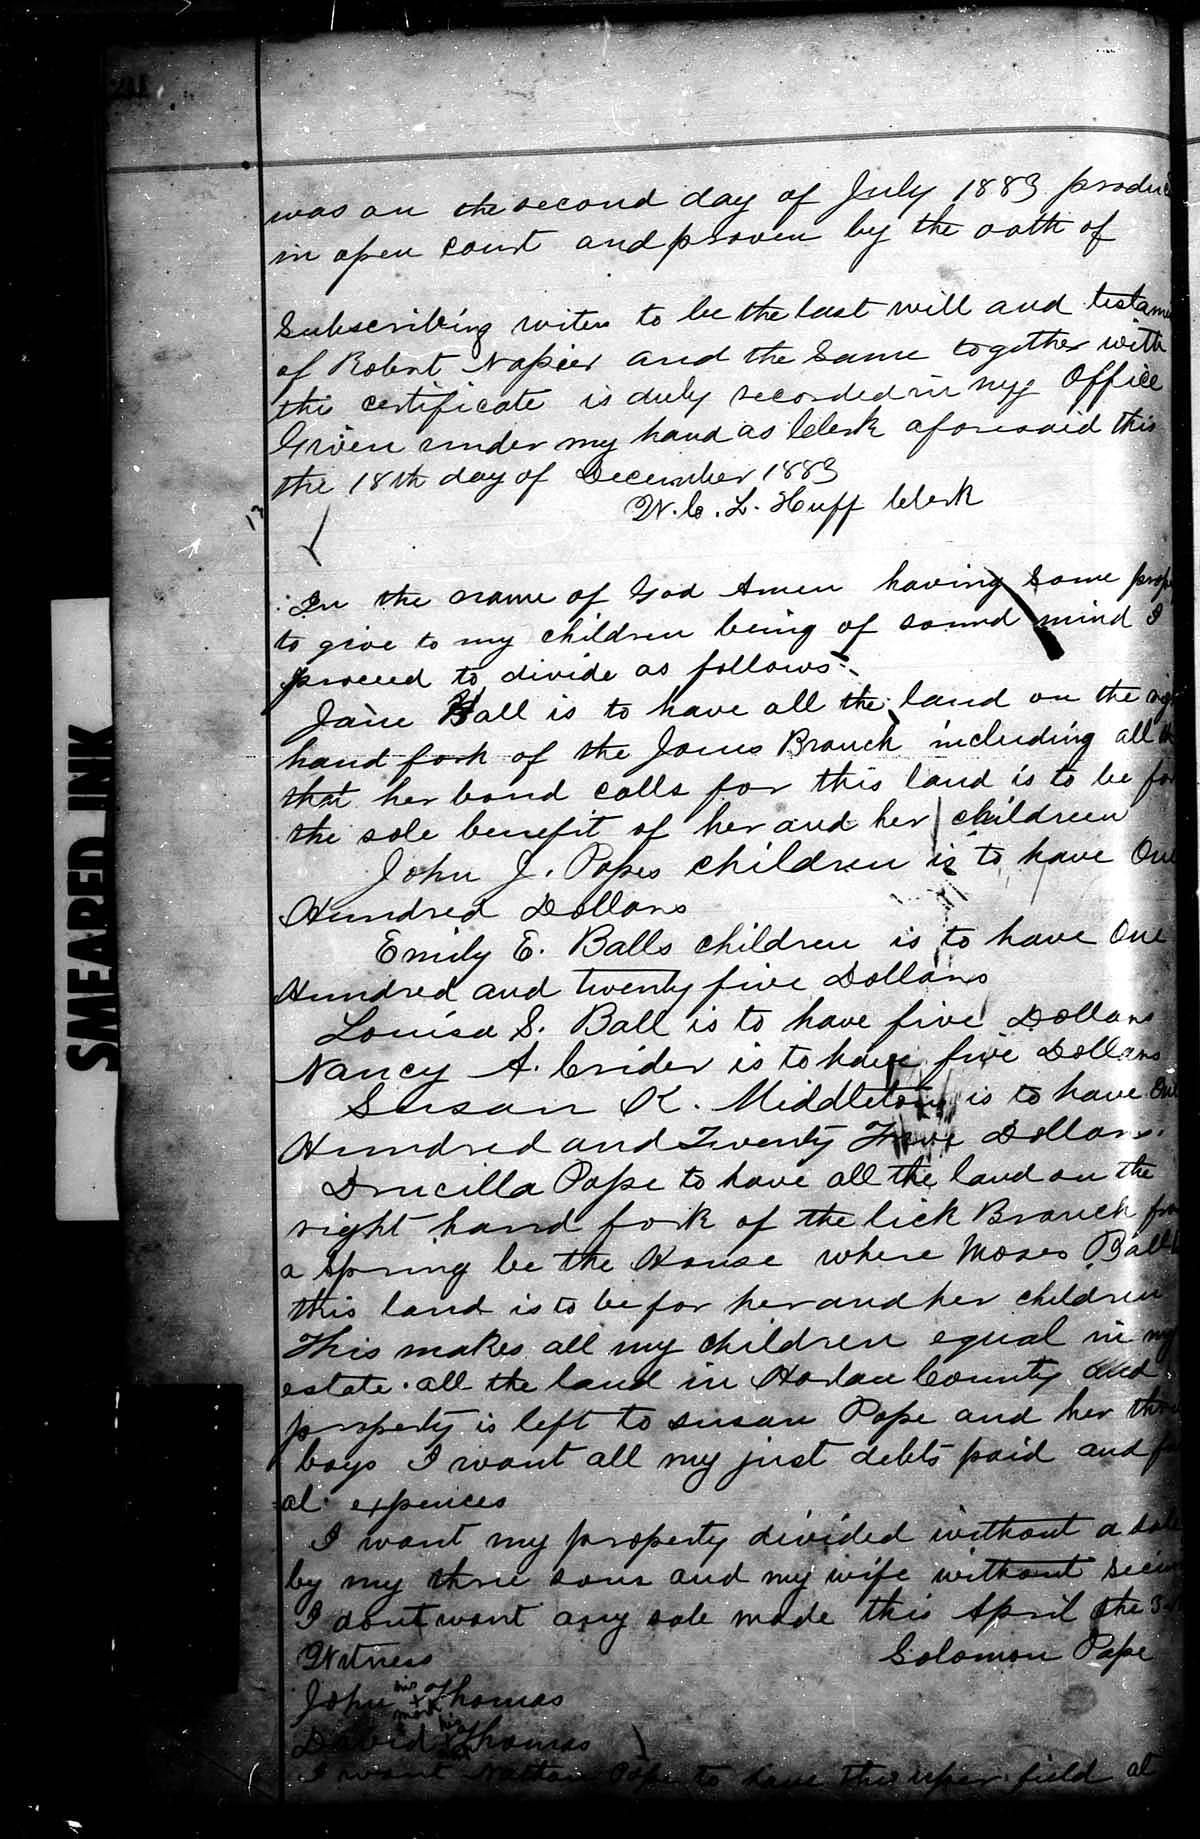 was on the second day of July 1883 produc
in open court and proven by the oath of
Subscribing witen to be the last will and testame
of Robert Napier and the same together with
this certificate is duly recorded in my Office
Given under my hand as Clerk aforesaid this
the 18th day of December 1883
W. C. L. Huff Clerk
In the name of God Amen having some prope
to give to my children being of sound mind I
proceed to divide as follows:
Jane Ball is to have all the land on the rig
hand fork of the Jones Branch including all th
that her bond calls for this land is to be for
the sole benefit of her and her children
John J. Popes children is to have One
Hundred Dollars
Emily E. Balls children is to have One
Hundred and twenty five Dollars
Louisa S. Ball is to have five Dollars
Nancy A. Crider is to have five Dollars
Susan K. Middleton is to have One
Hundred and Twenty Dollars.
Drucilla Pope to have all the land on the
right hand fork of the lick Branch fro
a Spring be the House where Moses Ball
this land is to be for her and her children
This makes all my children equal in my
estate. all the land in Harlan County and
property is left to Susan Pope and her thre
boys I want all my just debts paid and fu
al expences
I want my property divided without a sale
by my three sons and my wife without
I dont want any sale made this April the
Solomon Pope
Witness
John his x mark Thomas
David his x mark Thomas
I want Nathan Pope to have the uper field at
SMEARED INK